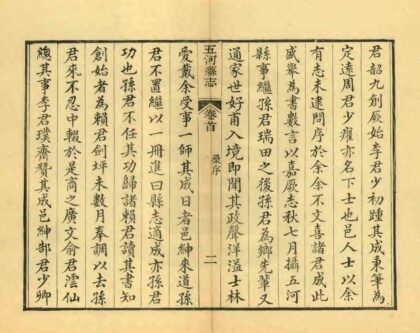 君韶九創厥始李君少初踵其成秉筆為
定遠周君少癯亦名下士也邑人士以余
有志未逮問序於余余不文喜諸君成此
盛舉為書數言以嘉厥志秋七月攝五河
縣事繼孫君瑞田之後孫君為鄉先輩又
通家世好甫入境即聞其政聲洋溢士林
五河縣志
卷首
桑序
二
愛戴余受事一師其成日者邑紳來道孫
君不置繼以一冊進曰縣志適成亦孫君
功也孫君不任其功歸諸賴君讀其書知
創始者為賴君劍坪未數月奉調以去孫
君來不忍中輟於是商之廣文俞君雲仙
總其事李君璞齋贊其成邑紳郜君少卿